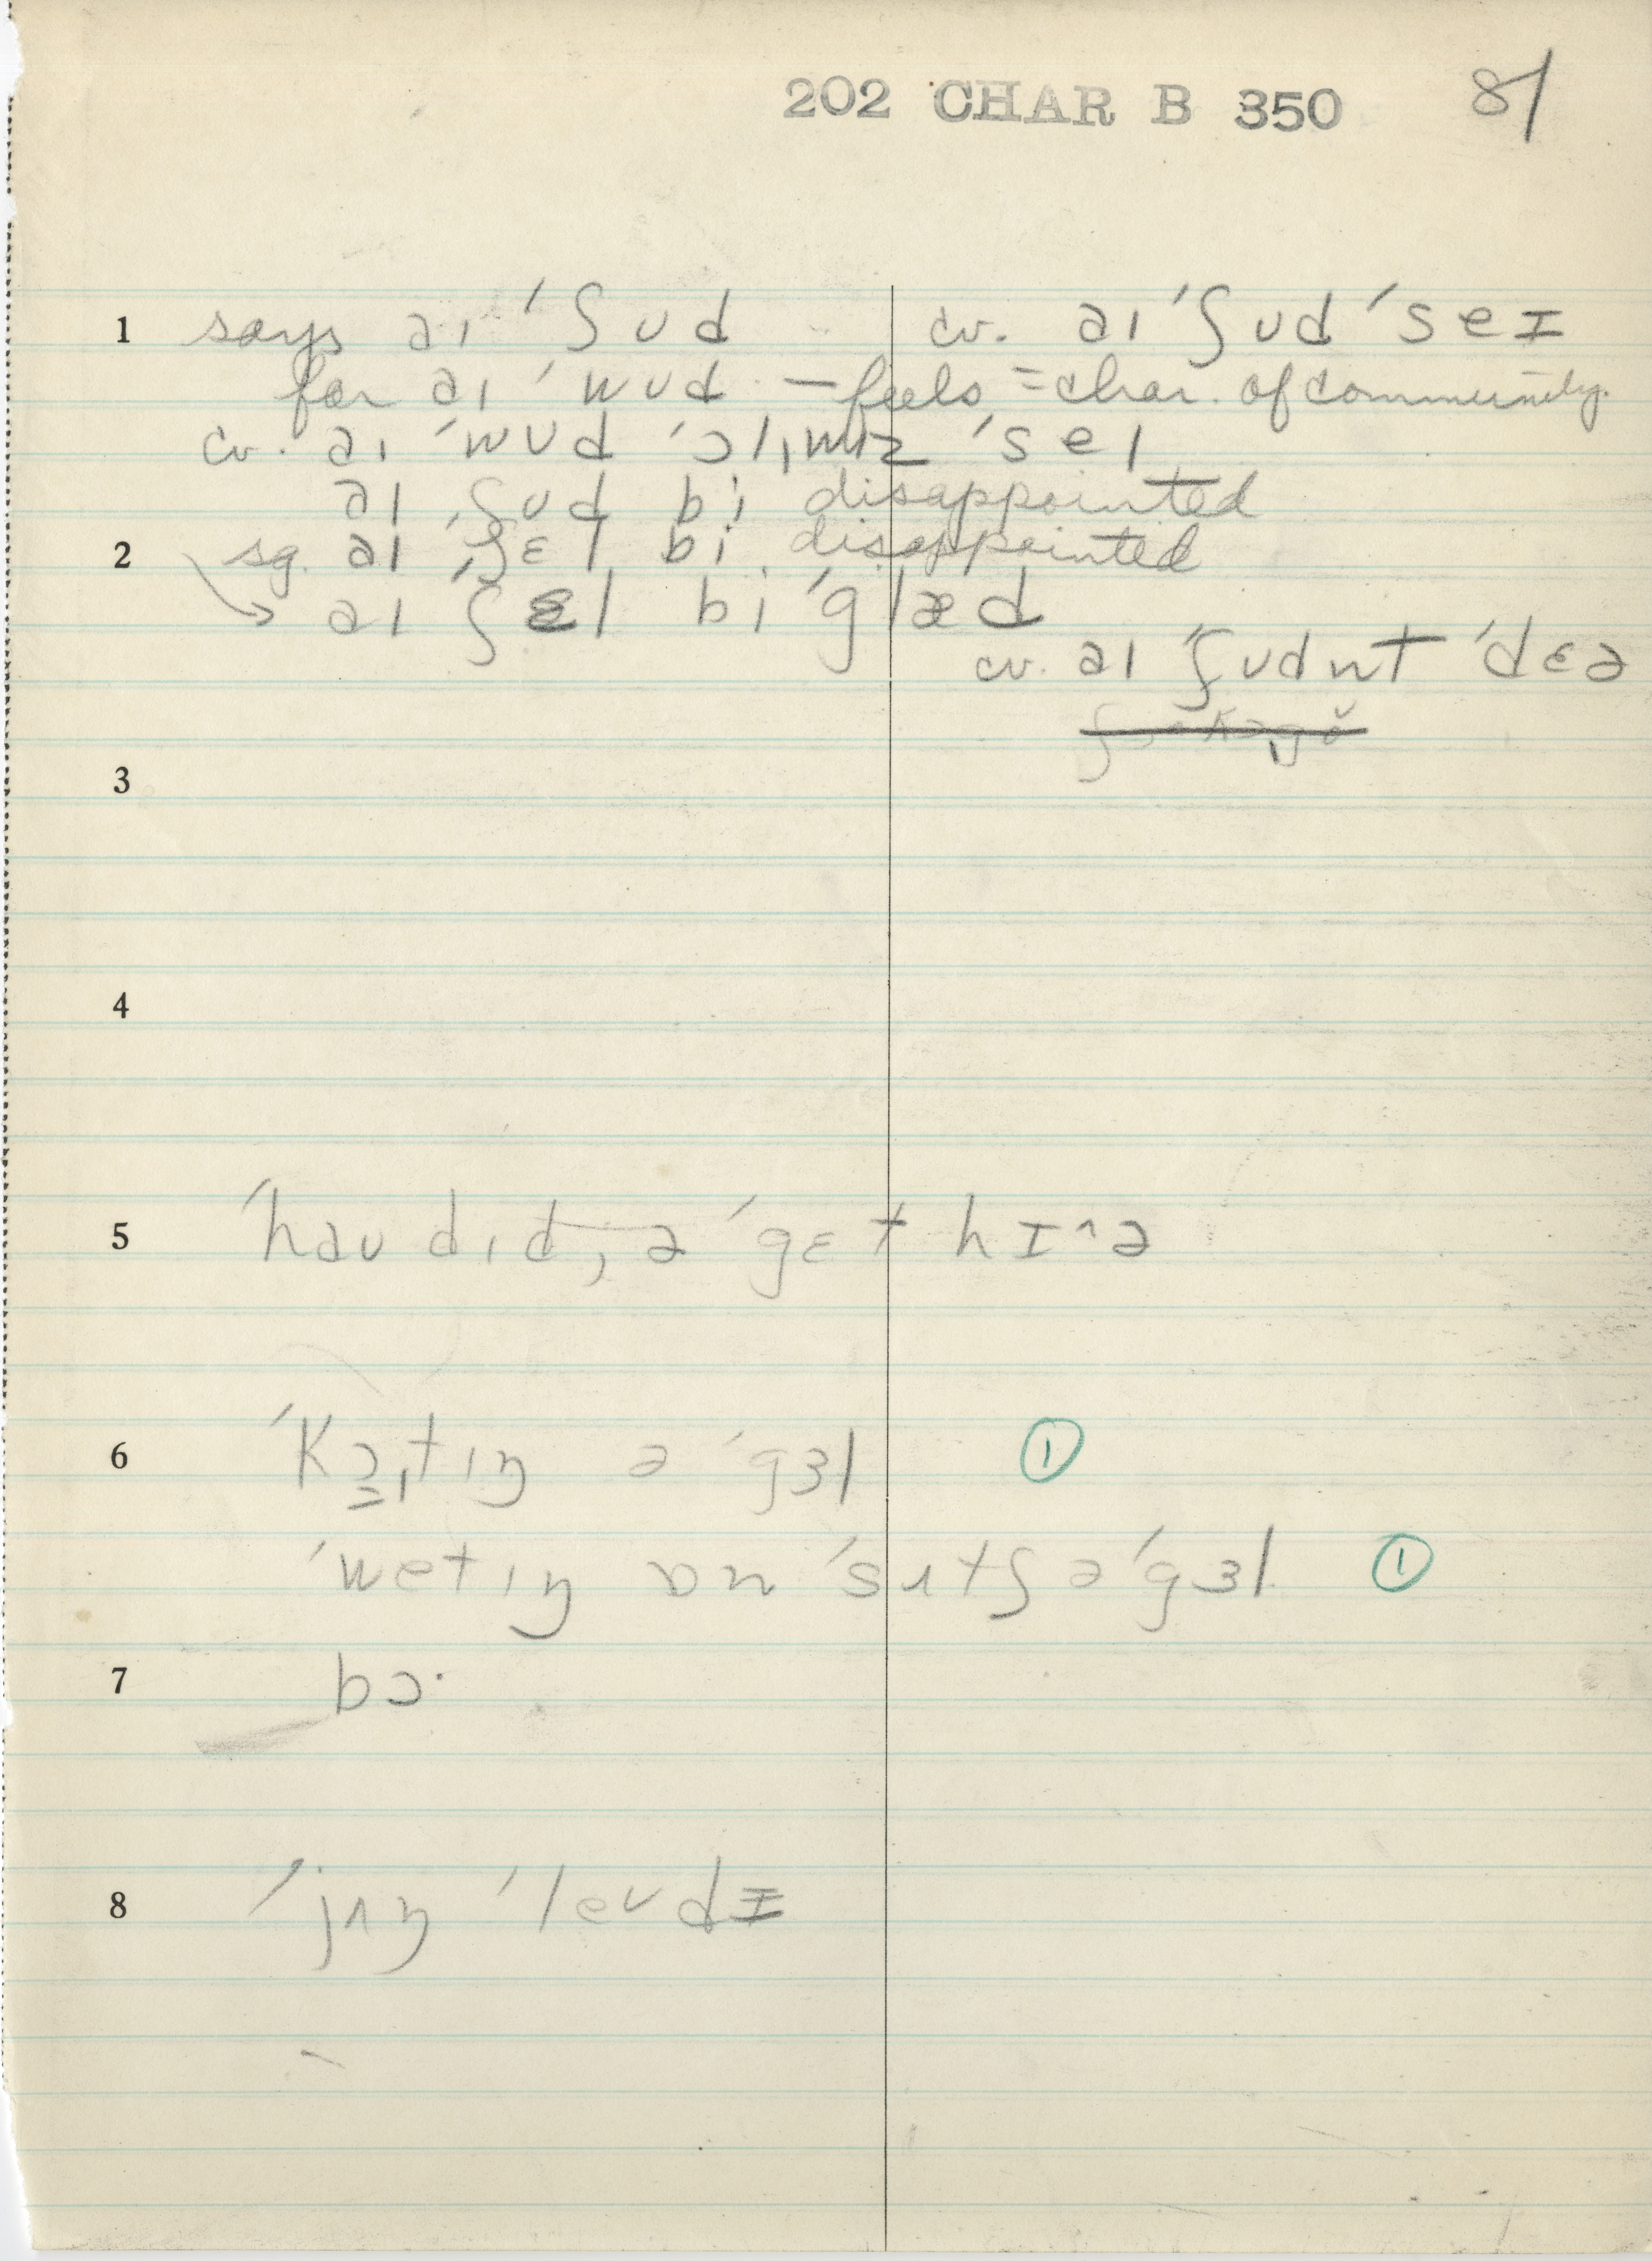 202 CHAR B 350 81
1 says aɪ ˈʃʊd cv. aɪ ˈʃʊd ˈseɪ
for aɪ ˈwʊd — feels = char. of community.
cv. aɪ ˈwʊd ˈɔlˌmɪz ˈseɪ
aɪ ˌʃʊd bi disappointed
2 sg. aɪ ˌʃɛl bi disappointed
→ aɪ ˈʃɛl bi ˈglæd
cv. aɪ ˈʃʊdnt ˈdɛə
3
4
5 ˈhaʊ dɪd ə ˈgɛt hɪ^ə
6 ˈkɔ̳ˌtɪŋ ə ˈgɜl ①
ˈwetɪŋ ɒn ˈsʌtʃ ə ˈgɜl ①
7 bɔ·
8 ˈjʌŋ ˈleʊdɪ